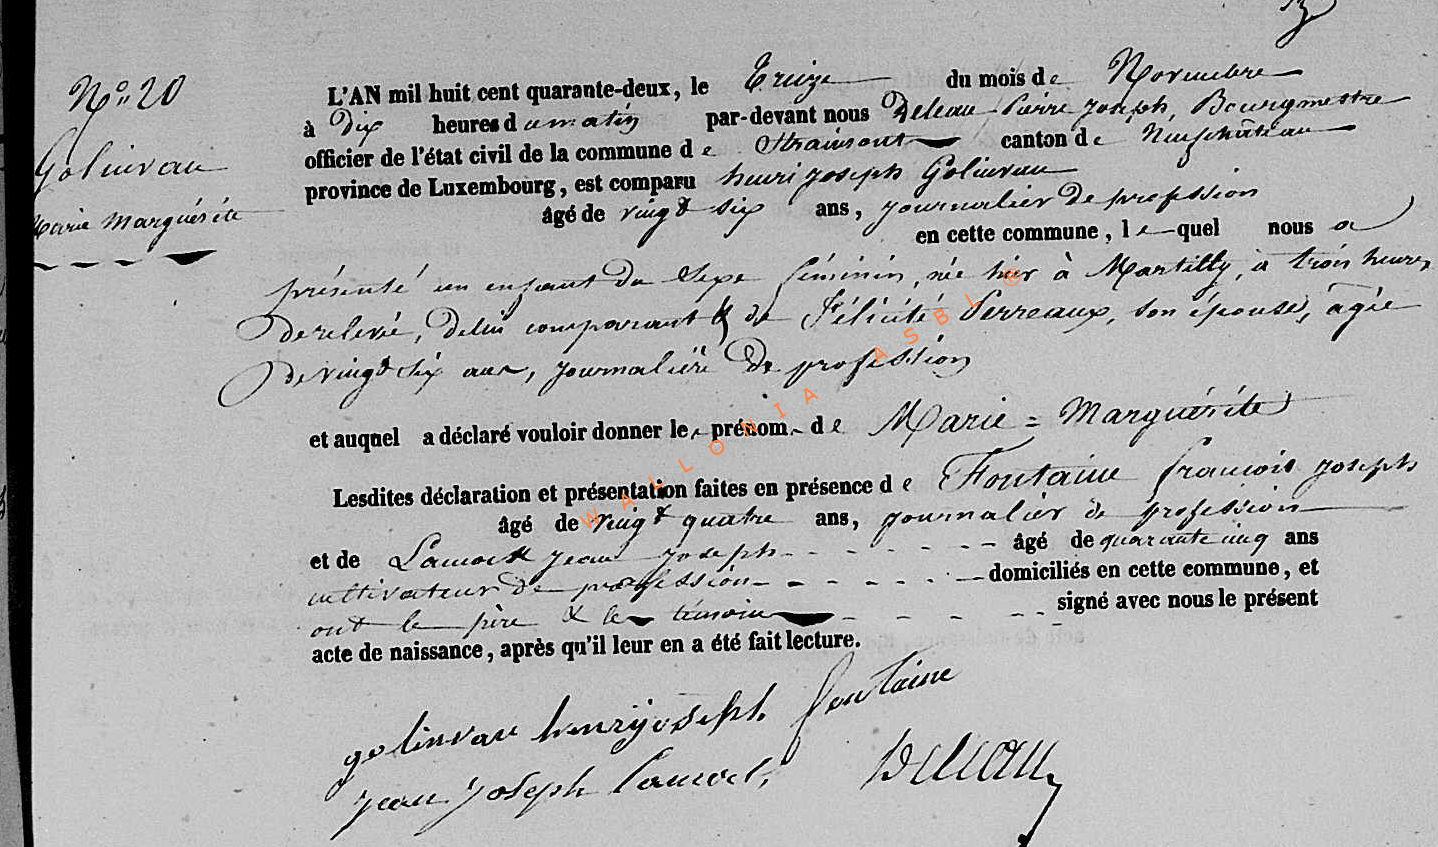 N° 20
Golinvau
Marie Marguérite
L'AN mil huit cent quarante-deux, le Treize du mois de Novembre
à Dix heures du matin par-devant nous Deleau Pierre Joseph, Bourgmestre
officier de l'état civil de la commune de Straimont canton de Neufchâteau
province de Luxembourg, est comparu henri joseph Golinvau
âgé de vingt six ans, journalier de profession
en cette commune, le quel nous a
présenté un enfant du sexe féminin, née hier à Martilly, à trois heures
de relevé, de lui comparant & de Félicité Perreaux, son épouse, agée
de vingt six ans, journalière de profession
et auquel a déclaré vouloir donner le prénom de Marie = Marguérite
Lesdites déclaration et présentation faites en présence de Fontaine françois joseph
âgé de vingt quatre ans, journalier de profession
et de Lamock jean joseph âgé de quarante cinq ans
cultivateur de profession domiciliés en cette commune, et
ont le père & les témoins signé avec nous le présent
acte de naissance, après qu'il leur en a été fait lecture.
golinvau henryjoseph fontaine
jean joseph Deleau
WALLONIA ASBL ®